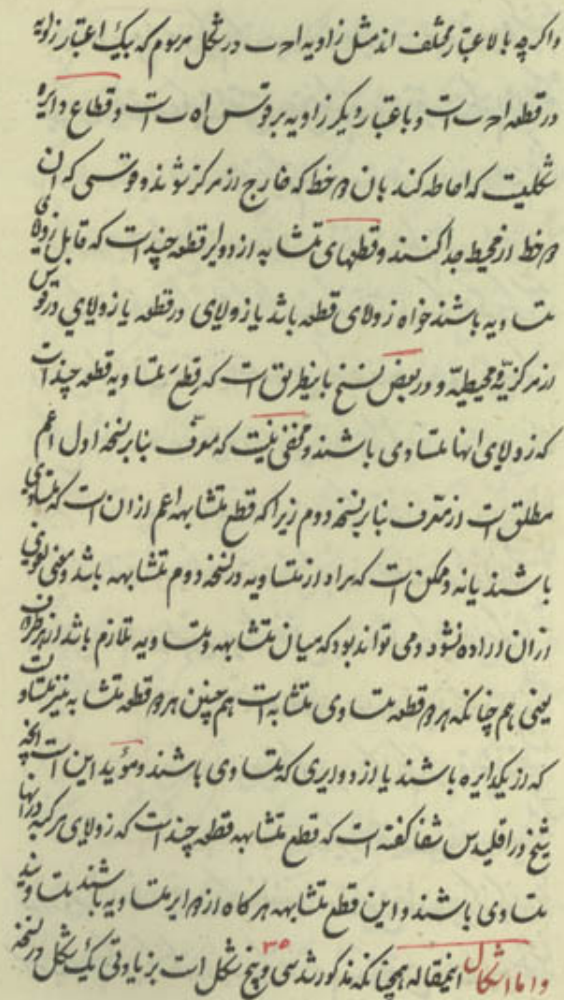 واگر چه بالاعتبار مختلف اند مثل زاویه احب در شکل مرسوم که بیک اعتبار زاویه
در قطعه احب است و باعتبار دیگر زاویه بر قوس اهب است و قطاع دایره
شکلیست که احاطه کند بان دو خط که خارج از مرکز شوند و قوسی که ان
دو خط از محیط جدا کنند و قطعهای متشابه از دوایر قطعه چند است که قابل زوایای
متساویه باشند خواه زوایای قطعه باشد یا زوایای در قطعه یا زوایای در قوس
از مرکزیه و محیطیه و در بعض نسخ باینطریق است که قطع متساویه قطعه چند است
که زوایای انها متساوی باشند و مخفی نیست که معرف بنابر نسخه اول اعم
مطلق است از معرف بنابر نسخه دوم زیرا که قطع متشابهه اعم ازان است که متساوی
باشند یا نه و ممکن است که مراد از متساویه در نسخه دوم متشابهه باشد و معنی لغوی
ازان اراده نشود و می تواند بود که میان متشابهه و متساویه تلازم باشد از هر طرف
یعنی هم چنانکه هر دو قطعه متساوی متشابه است هم چنین هر دو قطعه متشابه نیز متساویست
که از یکدایره باشند یا از دوایری که متساوی باشند و مؤید این است انچه
شیخ در اقلیدس شفا گفته است که قطع متشابهه قطعه چند است که زوایای هر یک در انها
متساوی باشند و این قطع متشابهه هر گاه از دوایر متساویه باشند متساویند
واما اشکال اینمقاله همچنانکه مذکور شد سی و پنج ۳۵ شکل است بزیادتی یک شکل در نسخه